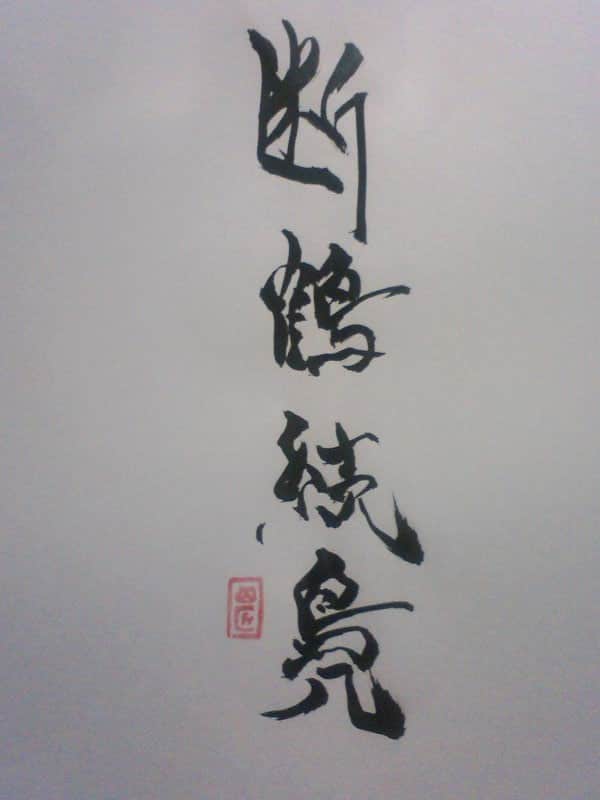 断鶴続鳧